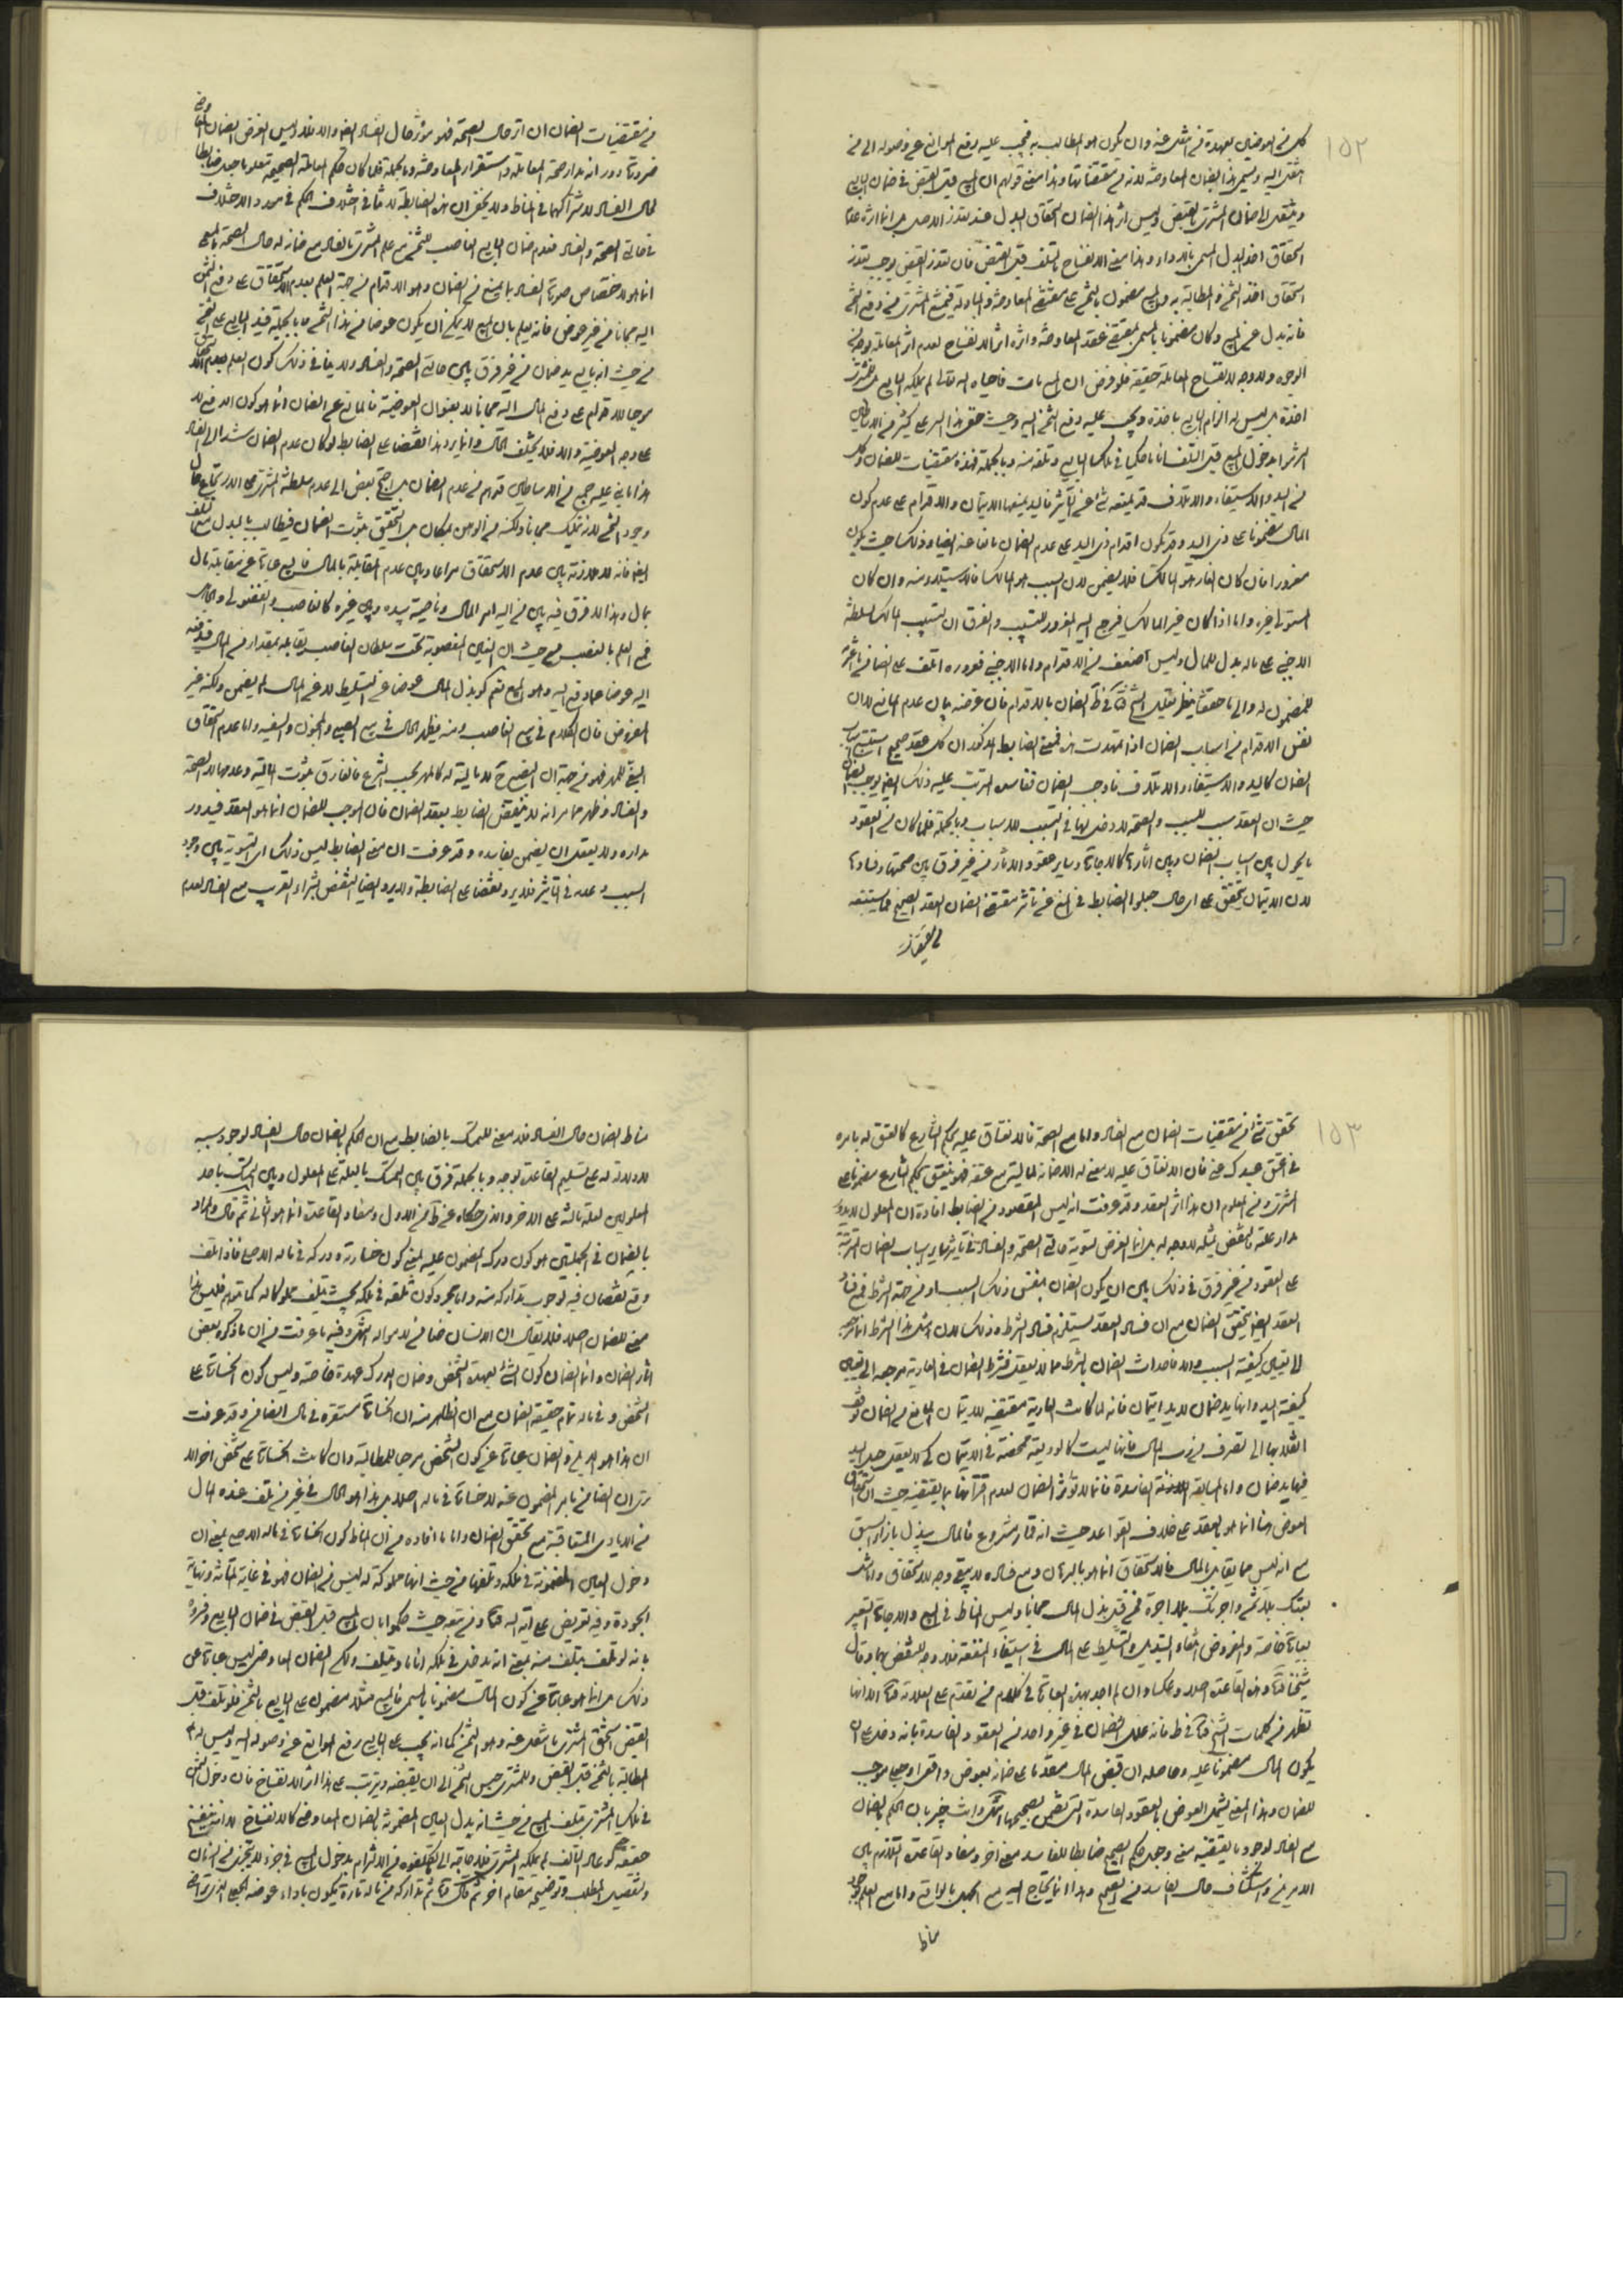 ١٥٢
كل من العوضين بعهدة من انتقل عنه وان يكون هو المطالب به فيجب عليه رفع الموانع عن وصوله الى من
انتقل اليه ويسمى هذا بضمان المعاوضة لانه من مقتضاتها وهذا معنى قولهم ان المبيع قبل القبض في ضمان البايع
وينتقل الى ضمان المشترى بالقبض وليس اثر هذا الضمان استحقاق البدل عند تعذر الاصل بل انما اثره
استحقاق اخذ البدل المسمى بالاداء وهذا معنى الانفساخ بالتلف قبل القبض فان تعذر القبض يوجب تعذر
استحقاق اخذ الثمن والمطالبة به والمبيع مضمون بالثمن على مقتضى المعاوضة والمبادلة فيمتنع المشترى من دفع الثمن
فانه بدل عن المبيع وكان مضمونا بالمسمى بمقتضى عقد المعاوضة واثره اثر الانفساخ لعدم اثر المعاملة بوجه من
الوجوه ولا وجه لانفساخ المعاملة حقيقة فلو فرض ان المبيع مات فاحياه الله تعالى لم يملكه البايع بل للمشترى
اخذه بل ليس له الزام البايع باخذه ويجب عليه دفع الثمن اليه وحيث خفى هذا السر على كثير من الاساطين
التزموا بدخول المبيع قبل التلف انا ما حكما في ملك البايع وتلفه منه وبالجملة فهذه مقتضيات للضمان وكل
من اليد والاستيفاء والاتلاف قد يمنعه شئ عن التأثير فاليد يمنعها الايتمان والاقدام على عدم كون
المال مضمونا على ذى اليد وقد يكون اقدام ذى اليد على عدم الضمان مانعا عنه ايضا وذلك حيث يكون
مغرورا فان كان الغار هو المالك فلا يضمن لان السبب هو المالك فالاستيلاء منه وان كان
المستولى غيره واما اذا كان غير المالك فيرجع اليه المغرور للتسبيب والفرق ان تسبيب المالك لسلطنة
الاجنبى على ماله بدل للمال وليس اضعف من الاقدام واما الاجنبى فغروره اتلف على الضامن ما اغترمه
للمضمون له والى ما حققنا ينظر تعليل الشيخ في ط الضمان بالاقدام فان غرضه بيان عدم المانع لا ان
نفس الاقدام من اسباب الضمان اذا تمهدت هذه فمعنى الضابط المذكور ان كل عقد صحيح استتبع سبب
الضمان كاليد والاستيفاء والاتلاف فاوجب الضمان ففاسده المترتب عليه ذلك ايضا يوجب الضمان
حيث ان العقد سبب للسبب والصحة لا دخل لها في تسبيب الاسباب وبالجملة فلما كان من العقود
ما يحول بين اسباب الضمان وبين اثارها كالاجارة وساير عقود الاثار من غير فرق بين صحتها وفسادها
لان الايتمان يتحقق على اى حال جعلوا الضابط في المنع عن تاثير مقتضى الضمان العقد الصحيح فما يستتبعه

من مقتضيات الضمان ان اثر حال الصحة فهو مؤثر حال الفساد ايضا والا فلا وليس الغرض الضمان المعاوضى
ضرورة دورانه مدار صحة المعاملة واستقرار المعاوضة وبالجملة فلما كان حكم المعاملة الصحيحة معلوما جعل ضابطا
لحال الفساد لاشتراكهما في المناط ولا يخفى ان هذه الضابطة لا تنافى اختلاف الحكم في موارد الاختلاف
في حالتى الصحة والفساد فعدم ضمان البايع الغاصب للثمن مع علم المشترى بالفساد مع ضمانه له حال الصحة بالمبيع
انما هو لاختصاص صورة الفساد بما يمنع من الضمان وهو الاقدام من جهة العلم بعدم الاستحقاق على دفع الثمن
اليه مجانا من غير عوض فانه يعلم بان المبيع لا يمكن ان يكون عوضا من هذا الثمن وبالجملة فيد البايع على الثمن
من حيث انه بايع يد ضمان من غير فرق بين حالتى الصحة والفساد ولا ينافى ذلك كون العلم بعدم الاستحقاق
موجبا للاقدام على دفع المال اليه مجانا لا بعنوان العوضية فالمانع عن الضمان انما هو كون الدفع لا
على وجه العوضية والا فلا يختلف الحال وانما يرد هذا النقض على الضابط لو كان عدم الضمان مستندا الى الفساد
هذا ما بنى عليه جمع من الاساطين قولهم من عدم الضمان بل احتج بعض الى عدم سلطنة المشترى على الاسترجاع حال
وجود الثمن لانه تمليك مجانا ولكنه من الوهن بمكان بل التحقيق ثبوت الضمان فيطالب بالبدل مع التلف
ايضا فانه لا ملازمة بين عدم الاستحقاق مراعا وبين عدم المقابلة بالمال فالبيع عبارة عن مقابلة مال
بمال وهذا لا فرق فيه بين من اليه امر المال وناصيته بيده وبين غيره كالغاصب والفضولى والحال
فمع العلم بالغصب فمن حيث ان العين المغصوبة تحت سلطان الغاصب يقابله بمقدار من المال فيدفعه
اليه عوضا عما دفع اليه وهو المبيع نعم لو بذل المال عوضا عن التسليط لا عن المال لم يضمن ولكنه غير
المفروض فان الكلام في بيع الغاصب ومنه يظهر الحال في بيع الصبى والمجنون والسفيه واما عدم استحقاق
البغى للمهر فهو من جهة ان البضع لا مالية له كالحر بحسب الشرع فالفارق ثبوت المالية وعدمها لا الصحة
والفساد وظهر مما مر انه لا ينتقض الضابط بعقد الضمان فان الموجب للضمان انما هو العقد فيدور
مداره ولا يعقل ان يضمن بفاسده وقد عرفت ان معنى الضابط ليس ذلك بل التسوية بين وجود
السبب وعدمه في التاثير فلا يرد نقضا على الضابطة ولا يرد ايضا النقض بشراء القريب مع الفساد لعدم

١٥٣
تحقق شئ من مقتضيات الضمان مع الفساد واما مع الصحة فالانعتاق عليه بحكم الشارع كالعتق له بامره
في اعتق عبدك عنى فان الانعتاق عليه لا معنى له الا ضمانه لماليته مع عتقه فهو ينعتق بحكم الشارع مضمونا على
المشترى ومن المعلوم ان هذا اثر العقد وقد عرفت انه ليس المقصود من الضابط افادة ان المعلول لا يدور
مدار علته فالنقض بمثله لا وجه له بل انما الغرض تسوية حالتى الصحة والفساد في تاثير ساير اسباب الضمان المترتبة
على العقود من غير فرق في ذلك بين ان يكون الضمان بنفس ذلك السبب او من جهة الشرط فمع فساد
العقد ايضا يتحقق الضمان مع ان فساد العقد يستلزم فساد الشرط وذلك لان اثر هذا الشرط انما يرجع
الى تعيين كيفية السبب والا فاحداث الضمان بالشرط مما لا يعقل فشرط الضمان في العارية مرجعه الى تعيين
كيفية اليد وانها يد ضمان لا يد ايتمان فانه لما كانت العارية مقتضيه للايتمان المانع من الضمان توقف
انقلابها الى تصرف من رب المال فانها ليست كالوديعة ممحضة في الايتمان كى لا يعقل جعل اليد
فيها يد ضمان واما المسابقة الفاسدة فانما لا تؤثر الضمان لعدم اقترانها بما يقتضيه حيث ان استحقاق
العوض هنا انما هو بالعقد على خلاف القواعد حيث انه قمار مشروع فالمال يبذل بازاء السبق
مع انه ليس مما يقابل بالمال فالاستحقاق انما هو بالرهان ومع فساده لا يبقى وجه للاستحقاق واما مثل
بعتك بلا ثمن واجرتك بلا اجرة فمن قبيل بذل المال مجانا وليس المناط في البيع والاجارة التعبير
بعبارة خاصة والمفروض انتفاء التبديل والتسليط على المال في استيفاء المنفعة فلا وجه للنقض بهما وقال
شيخنا وهذه القاعدة اصلا وعكسا وان لم اجد بهذه العبارة في كلام من تقدم على العلامة الا انها
تظهر من كلمات الشيخ في ط فانه علل الضمان في غير واحد من العقود الفاسدة بانه دخل على ان
يكون المال مضمونا عليه وحاصله ان قبض المال مقدما على ضمانه بعوض واقعى او جعلى موجب
للضمان وهذا المعنى يشمل العوض بالعقود الفاسدة التى تضمن بصحيحها انتهى وانت خبير بان الحكم بالضمان
مع الفساد لوجود ما يقتضيه معنى وجعل حكم الصحيح ضابطا للفاسد معنى اخر ومفاد القاعدة التلازم بين
الامرين واستكشاف حال الفاسد من الصحيح وهذا انما يحتاج اليه مع الجهل بالواقع واما مع العلم بوجود
مناط

مناط الضمان حال الفساد فلا معنى للتمسك بالضابط مع ان الحكم بالضمان حال الفساد لوجود سببه
لا دلالة له على تسليم القاعدة بوجه وبالجملة فرق بين التمسك بالعلة على المعلول وبين التمسك باحد
المعلولين لعلة ثالثة على الاخر والذى حكاه عن ط من الاول ومفاد القاعدة انما هو الثانى ثم قال والمراد
بالضمان في الجملتين هو كون درك المضمون عليه بمعنى كون خسارته ودركه في ماله الاصلى فاذا تلف
وقع نقصان فيه لوجوب تداركه منه واما مجرد كون تلفه في ملكه بحيث يتلف مملوكا له كما توهم فليس هذا
معنى للضمان اصلا فلا يقال ان الانسان ضامن لامواله انتهى وفيه ما عرفت من ان ما ذكره بعض
اثار الضمان وانما الضمان كون الشئ بعهدة الشخص وضمان الدرك عهدة خاصة وليس كون الخسارة على
الشخص وفي ماله تمام حقيقة الضمان مع ان الظاهر منه ان الخسارة مستقرة في مال الضامن وقد عرفت
ان هذا هو الاثر والضمان عبارة عن كون الشخص مرجعا للمطالبة وان كانت الخسارة على شخص اخر الا
ترى ان الضامن بامر المضمون عنه لا خسارة في ماله اصلا بل هذا هو الحال في غير من تلف عنده المال
من الايادى المتعاقبة مع تحقق الضمان واما ما افاده من ان المناط كون الخسارة في ماله الاصلى بمعنى ان
دخول العين المضمونة في ملكه وتلفها من حيث انها مملوكة له ليس من الضمان فهو في غاية المتانة ونهاية
الجودة وفيه تعريض على ومن تبعه حيث حكموا بان المبيع قبل القبض في ضمان البايع وفسروه
بانه لو تلف تلف منه بمعنى انه يدخل في ملكه انا ما ويتلف ولكن الضمان المعاوضى ليس عبارة عن
ذلك بل انما هو عبارة عن كون المال مضمونا بالمسمى فالمبيع مثلا مضمون على البايع بالثمن فلو تلف قبل
القبض استحق المشترى ما انتقل عنه وهو الثمن كما انه يجب على البايع رفع الموانع عن وصوله اليه وليس له
المطالبة بالثمن قبل القبض وللمشترى حبس الثمن الى ان يقبضه ويترتب على هذا اثر الانفساخ فان دخول الثمن
في ملك المشترى بتلف المبيع من حيث انه بدل العين المضمونة بالضمان المعاوضى كالانفساخ لا انه ينفسخ
حقيقة كيف ولو عاد التالف لم يملكه المشترى فلا حاجة الى تكلفوه من الالتزام بدخول المبيع في جزء لا يتجزى من الزمان
وتفصيل المطلب وتوضيحه مقام اخر ثم قال ثم تداركه من ماله تارة يكون باداء عوضه الجعلى الذى تراضيا